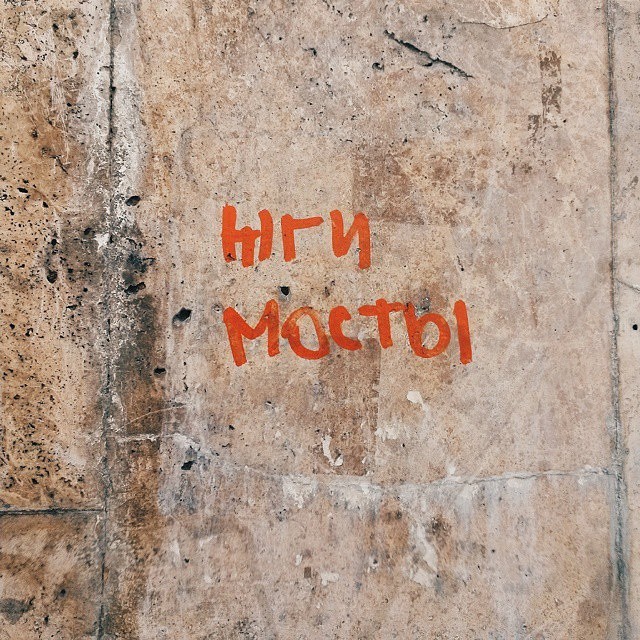 жги
мосты